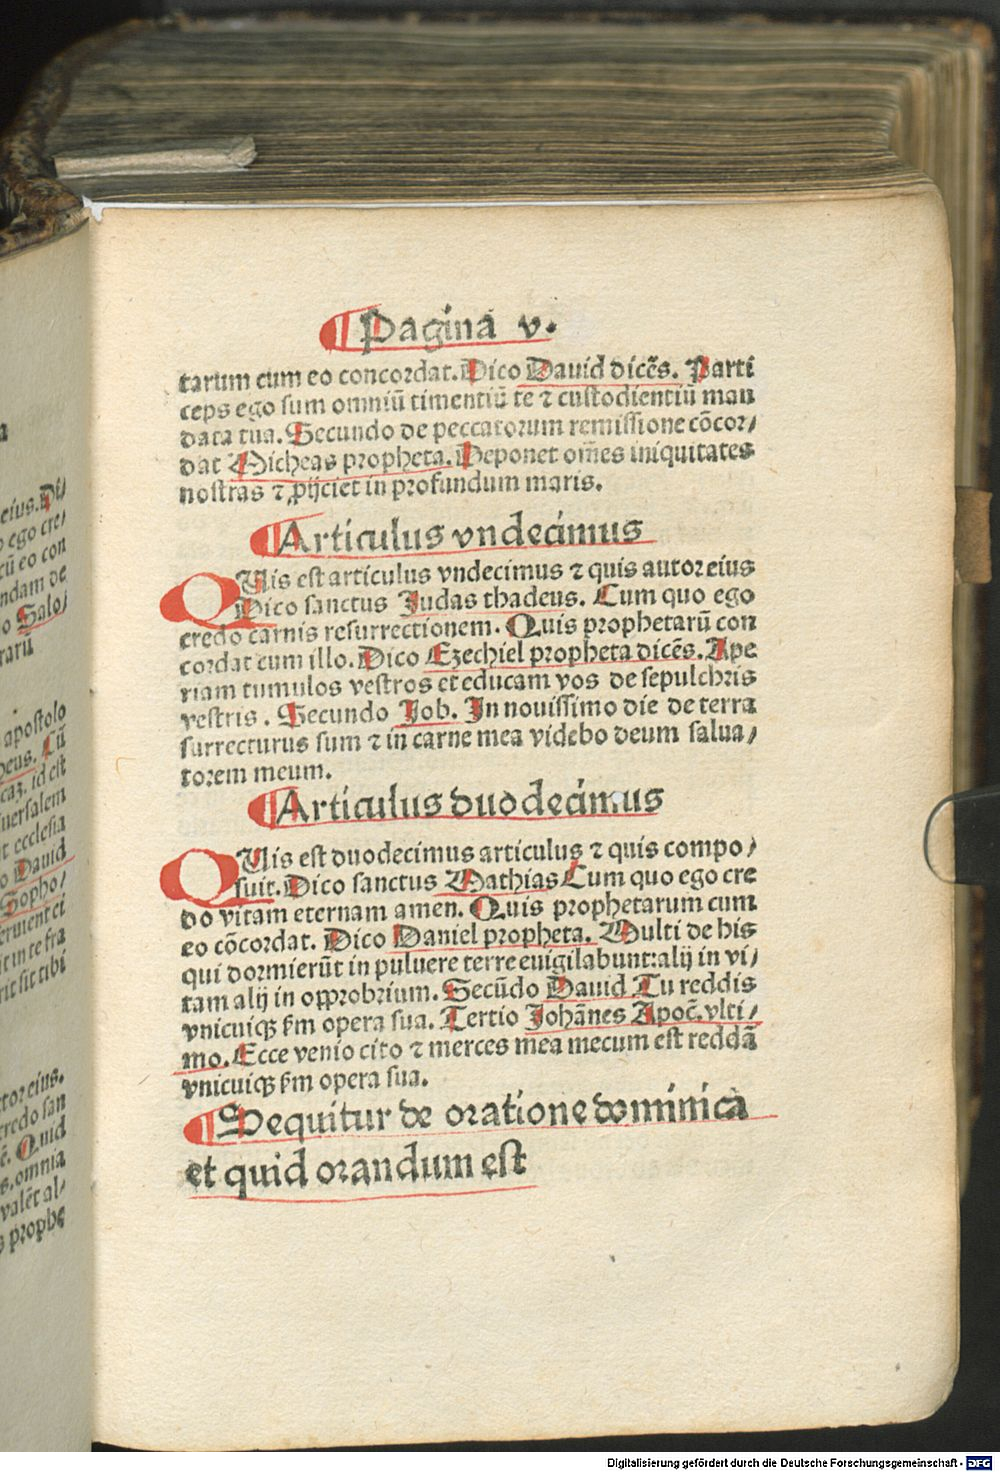 Pagina v.
tarum cum eo concordat. Dico Dauid dicẽs. Parti
ceps ego sum omniũ timentiũ te ⁊ custodientiũ man
data tua. Secundo de peccatorum remissione cõcor/
dat Micheas propheta. Deponet om̃es iniquitates
nostras ⁊ ꝓijciet in profundum maris.
Articulus vndecimus
QUis est articulus vndecimus ⁊ quis autor eius
Dico sanctus Judas thadeus. Cum quo ego
credo carnis resurrectionem. Quis prophetarũ con
cordat cum illo. Dico Ezechiel propheta dicẽs. Ape
riam tumulos vestros et educam vos de sepulchris
vestris. Secundo Job. In nouissimo die de terra
surrecturus sum ⁊ in carne mea videbo deum salua/
torem meum.
Articulus duodecimus
QUis est duodecimus articulus ⁊ quis compo/
suit. Dico sanctus Mathias Cum quo ego cre
do vitam eternam amen. Quis prophetarum cum
eo cõcordat. Dico Daniel propheta. Multi de his
qui dormierũt in puluere terre euigilabunt: alij in vi/
tam alij in opprobrium. Secũdo Dauid Tu reddis
vnicuiqꝫ ẜm opera sua. Tertio Johãnes Apoc̃. vlti/
mo. Ecce venio cito ⁊ merces mea mecum est reddã
vnicuiqꝫ ẜm opera sua.
Sequitur de oratione dominica
et quid orandum est
eius. Di/
ego cre/
cũ eo con
ndam de
o Salo/
apostolo
Cũ
id est
uersalem
ecclesia
o Dauid
Sopho/
eruient ei
it in te fra
rit sit tibi
tor eius.
credo san
Quid
omnia
valẽt al/
prophe
Digitalisierung gefördert durch die Deutsche Forschungsgemeinschaft - DFG